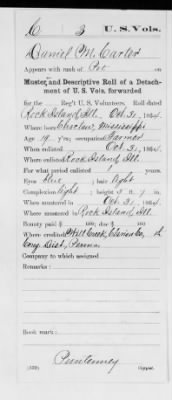 C 3 U. S. Vols.
Daniel M. Carter
Appears with rank of Pvt on
Muster and Descriptive Roll of a Detachment
of U. S. Vols. forwarded
for the Reg't U. S. Volunteers. Roll dated
Rock Island, Ill. Oct. 31, 1864.
Where born Choctaw, Mississippi
Age 19 y'rs; occupation Farmer
When enlisted Oct. 31, 1864.
Where enlisted Rock Island, Ill.
For what period enlisted 1 years.
Eyes Blue; hair light
Complexion light; height 5 ft. 7 in.
When mustered in Oct. 31, 1864.
Where mustered in Rock Island, Ill.
Bounty paid $ 100; due $ 100
Where credited Mill Creek, Co., th
Cong. Dist., Penna.
Company to which assigned
Remarks:
Book mark:
(339) Copyist.